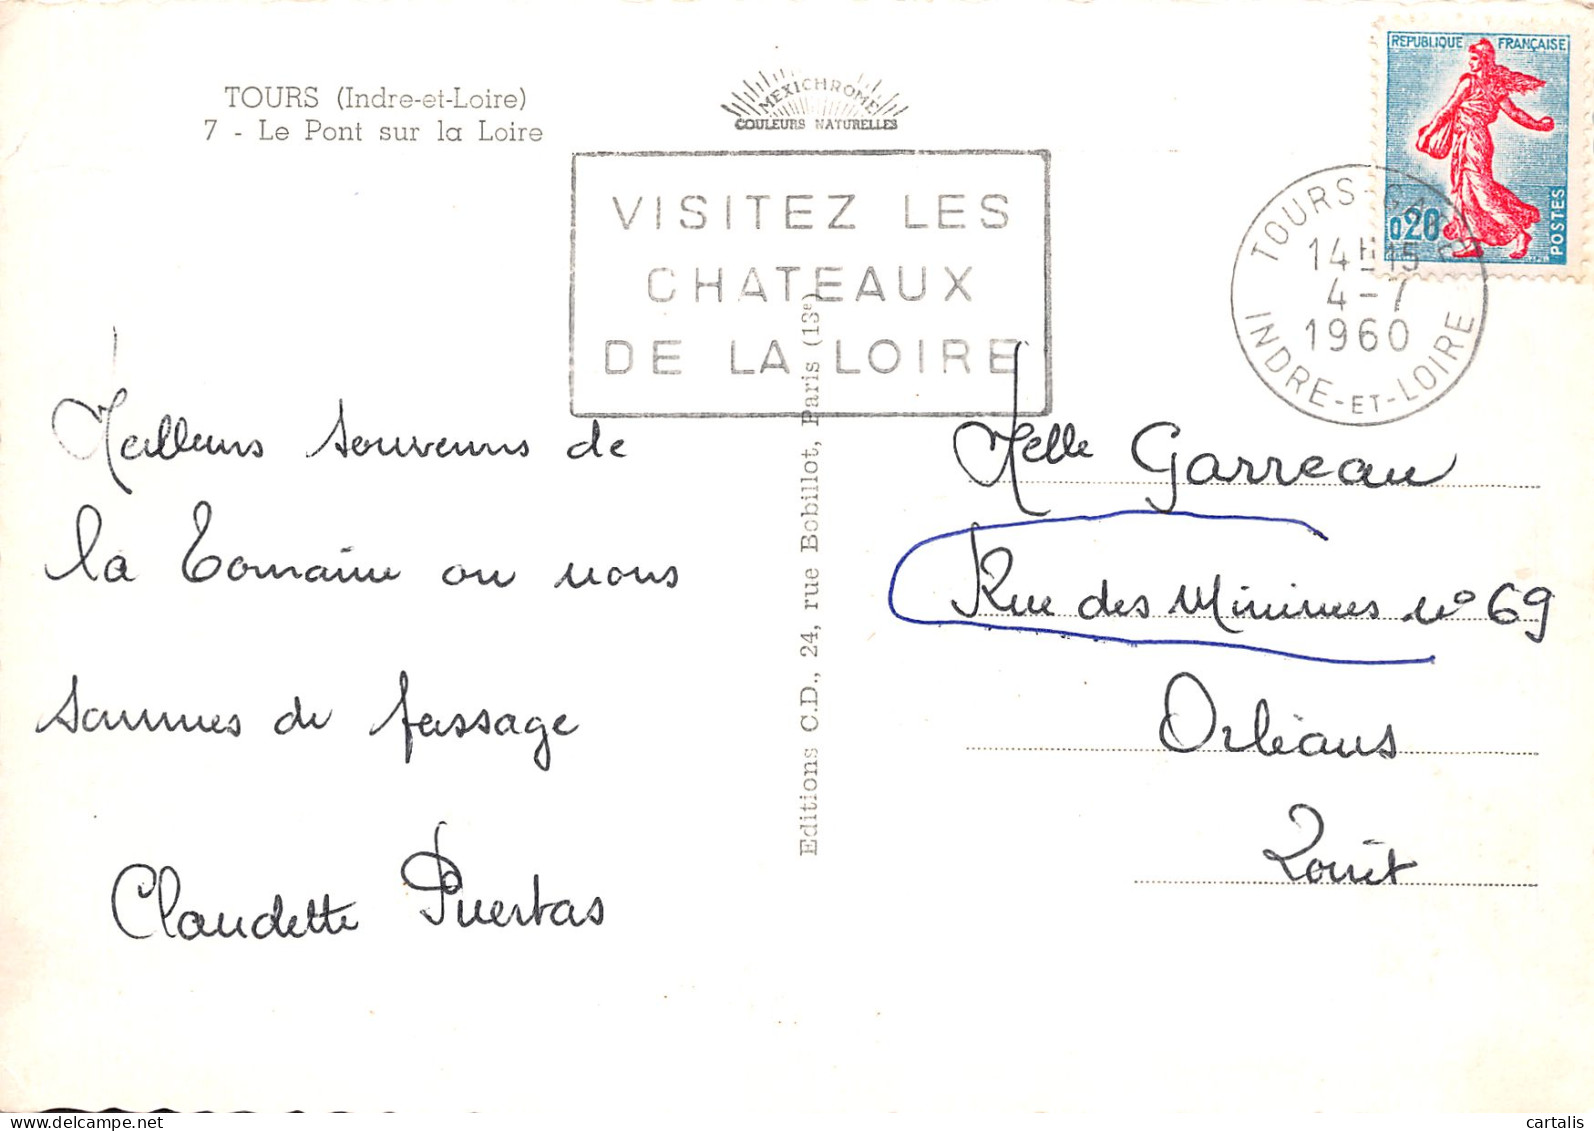 TOURS (Indre-et-Loire)
7 - Le Pont sur la Loire
MEXICHROME
COULEURS NATURELLES
REPUBLIQUE FRANÇAISE
0,20
POSTES
VISITEZ LES
CHATEAUX
DE LA LOIRE
TOURS-GARE
14H15
4-7
1960
INDRE-ET-LOIRE
Meilleurs souvenirs de
la Touraine ou nous
sommes de passage
Claudette Puertas
Editions C.D., 24, rue Bobillot, Paris (13e)
Melle Garreau
Rue des Minimes no 69
Orléans
Loiret
delcampe.net
cartalis